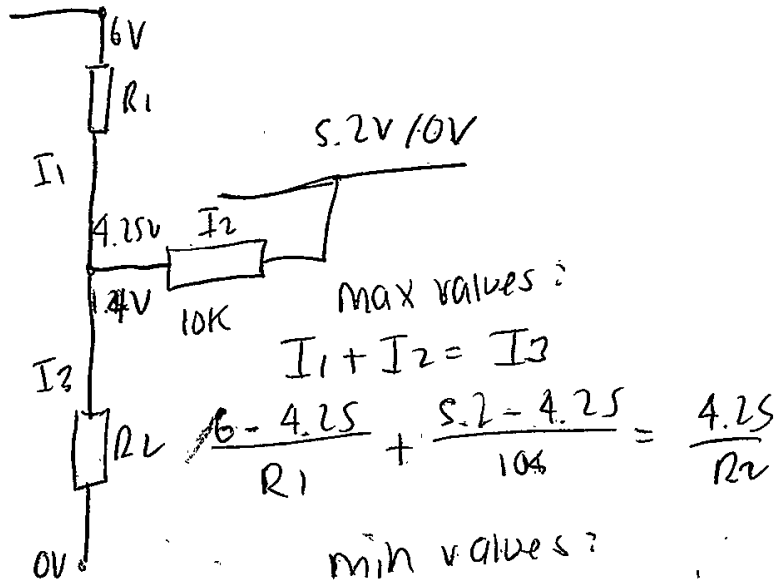 6V
R1
5.2V/0V
I1
4.25V I2
10K
max values:
I1 + I2 = I3
I3
R2
6 - 4.25 / R1 + 5.2 - 4.25 / = 4.25 / R2
0V
min values: